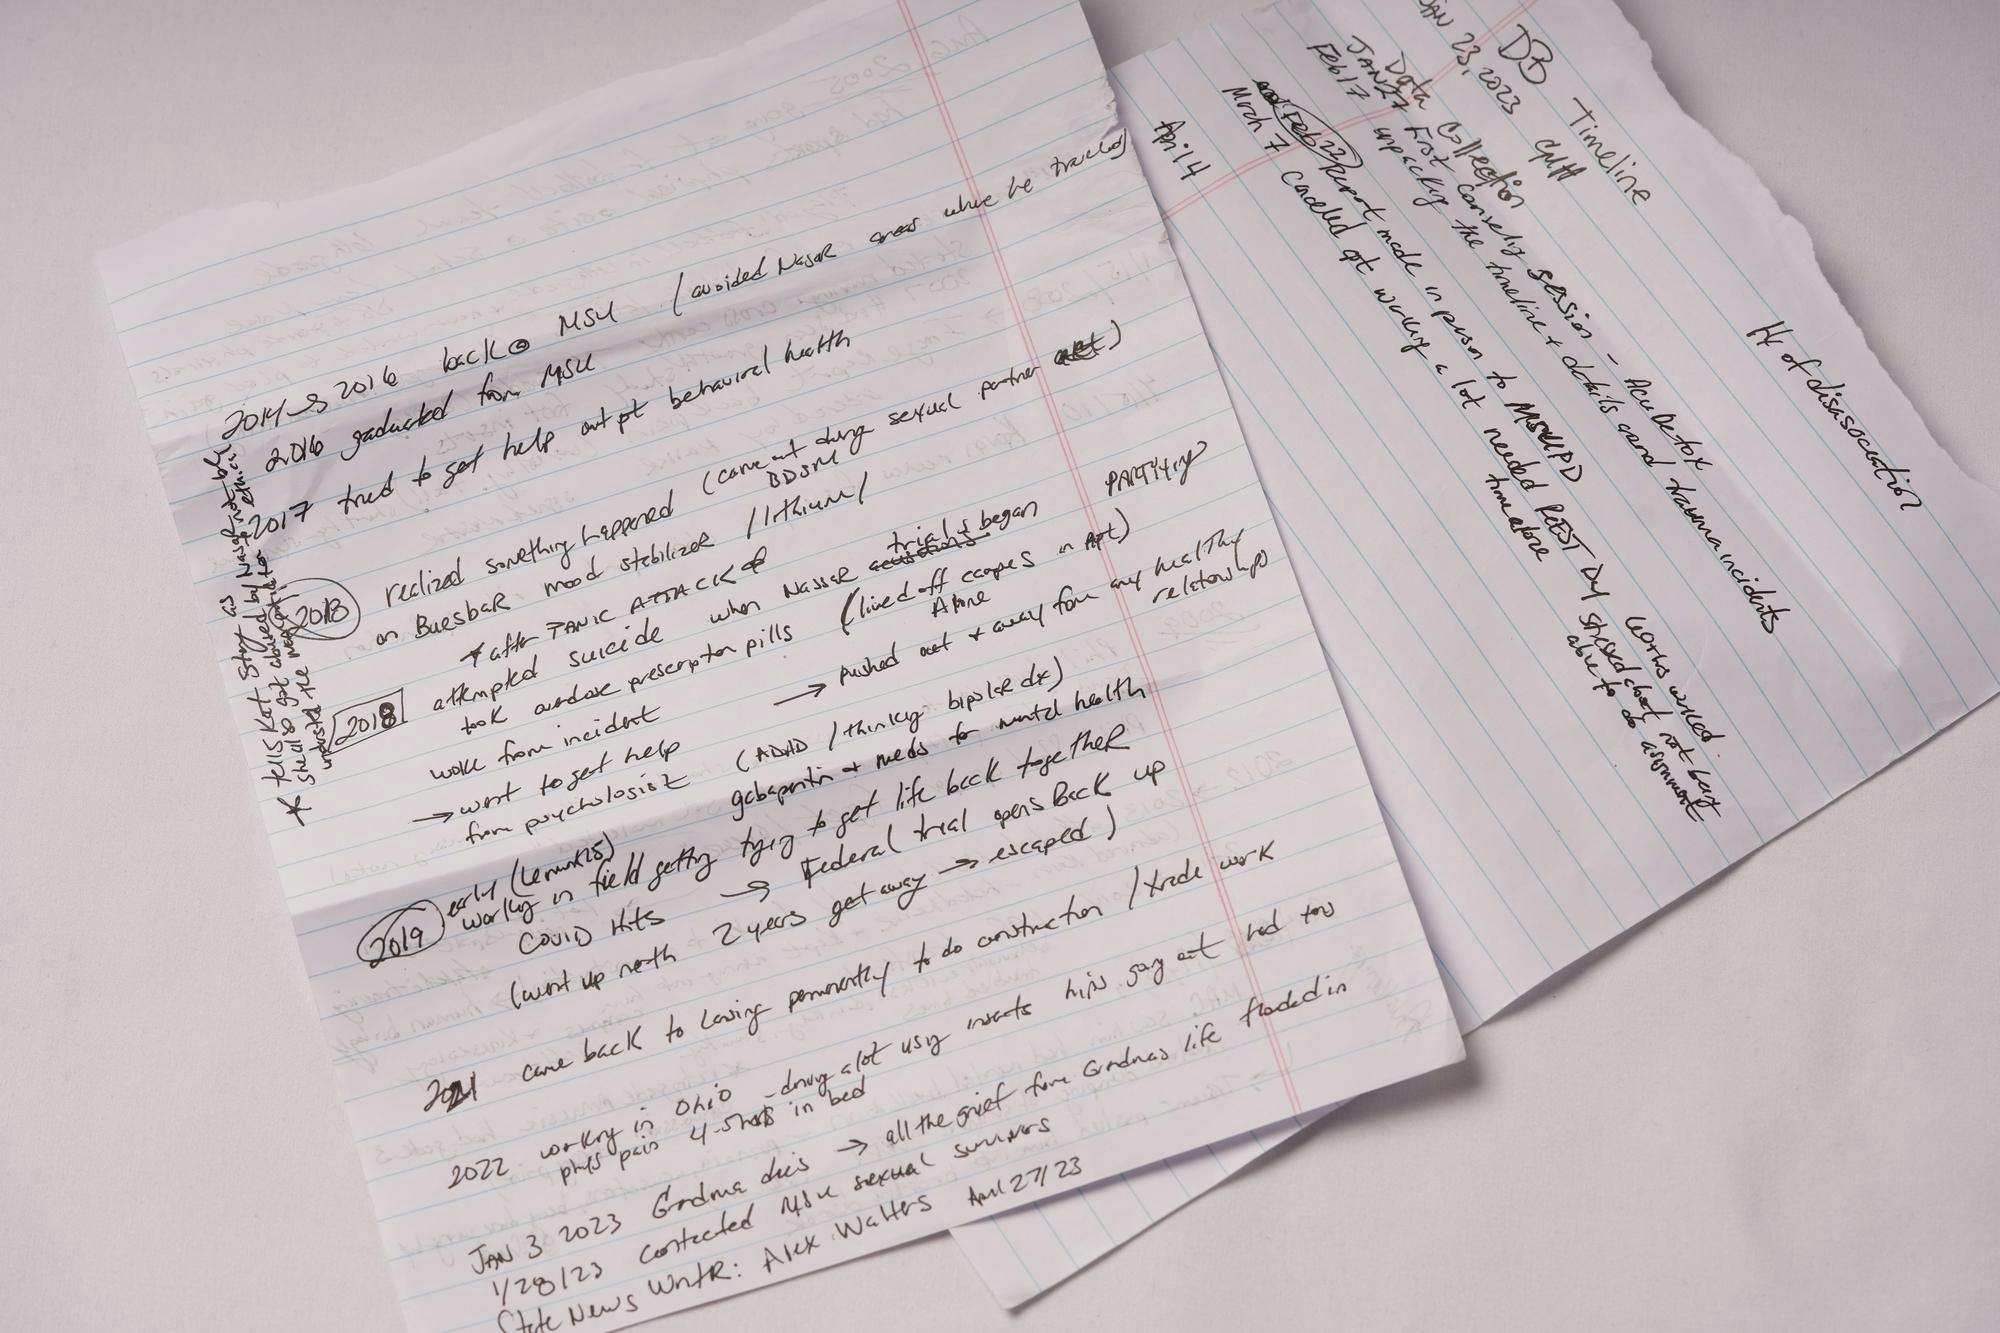 2014→2016 back @ MSU (avoided Nasar areas where he traveled)
2016 graduated from MSU
2017 tried to get help out pt behavioral health
realized something happened (came out during sexual partner
BDSM
on Buesbar mood stabilizer /lithium/
* after PANIC ATTACK
2018 attempted suicide when Nassar trials began PARTYing
took overdose prescription pills (lived off campus in Apt)
Alone
woke from incident → pushed out + away from any healthy
relationship
→ went to get help
from psychologist (ADHD / thinking bipolar dx)
gabapentin + meds for mental health
2019 early
working in field getting trying to get life back together
COVID Hits → Federal (trial opens Back up
(went up north 2 years get away → escaped)
2021 came back to Lansing permanently to do construction / trade work
2022 working in Ohio - driving alot using inserts hips going out had
phys pain 4-shots in bed
JAN 3 2023 Grandma dies → all the grief from Grandmas life flooded in
1/28/23 contacted MSU sexual survivors
State News WritR: Alex Walters April 27/23
* tells Kat story as
she also got abused by Nasar
DB Timeline
JAN 23, 2023
Data Collection
JAN 27 First counseling session - AcuDetox
Feb 17 unpacking the timeline + details and trauma incidents
Feb 22 report made in person to MSUPD
March 7 canceled apt working a lot needed REST Day
time alone
April 4 works wiked.
stressed about not being
able to do assignment
Hx of disasociation